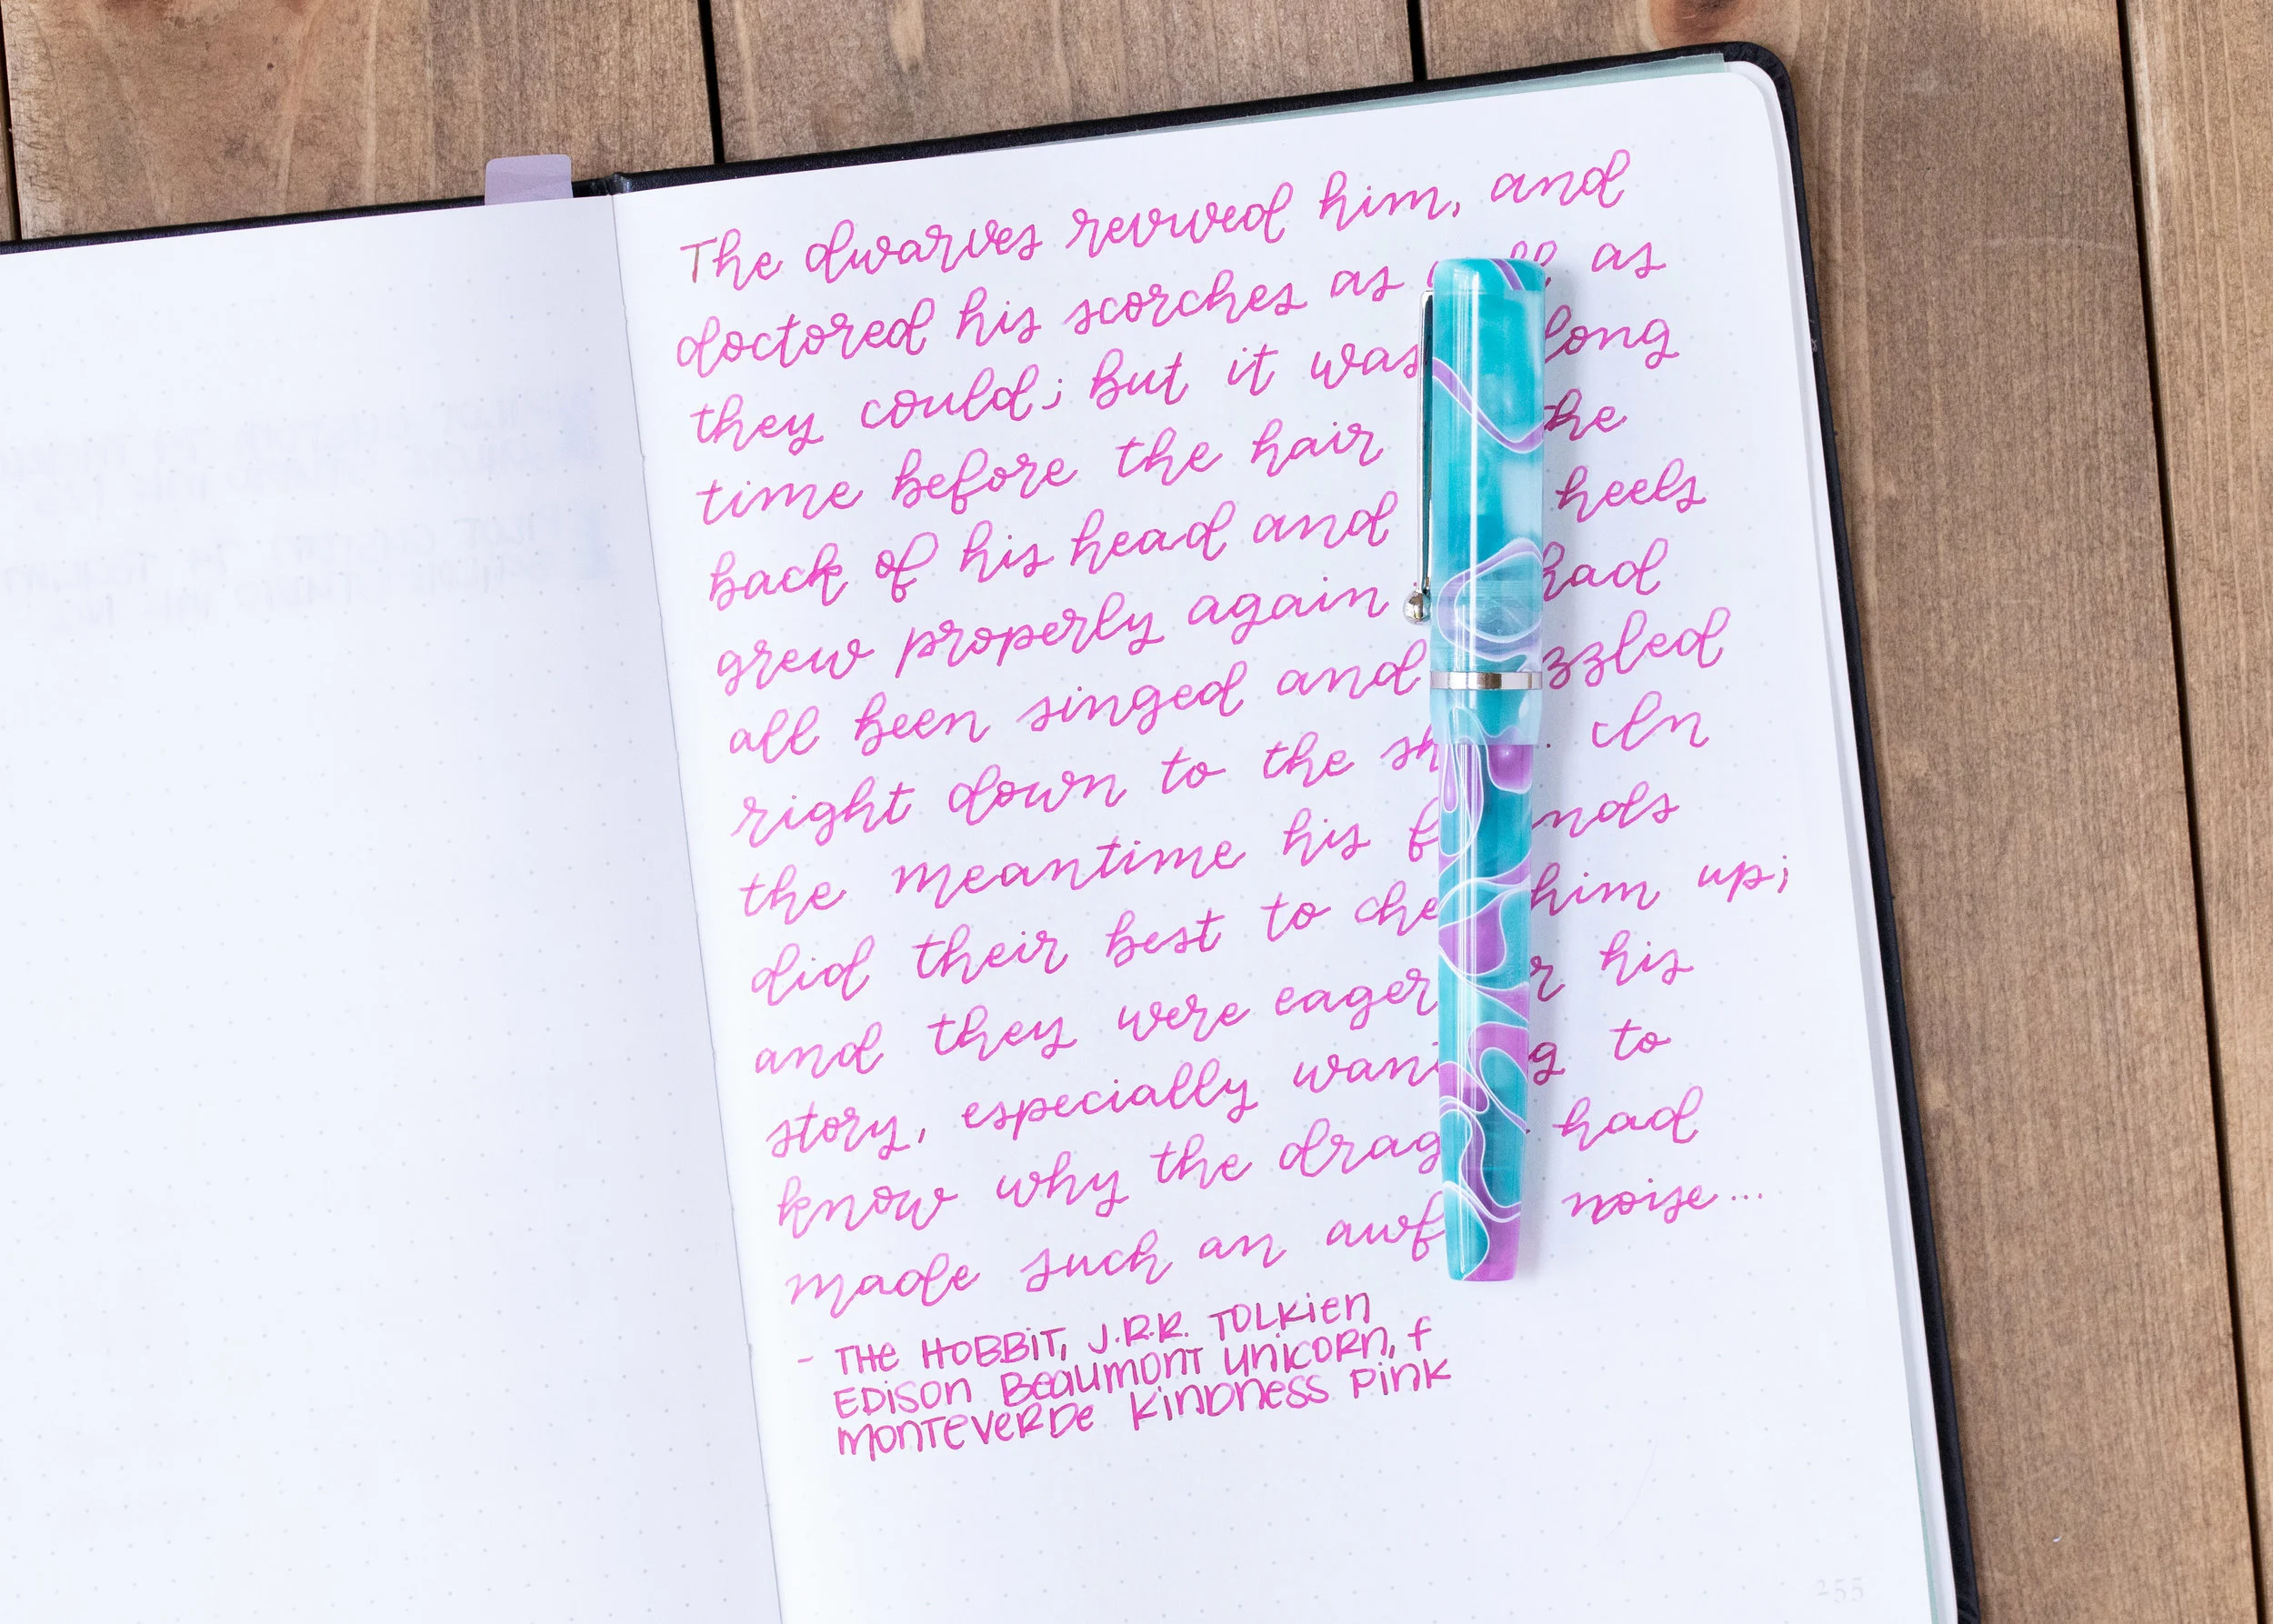 The dwarves revived him, and
doctored his scorches as well as
they could; but it was long
time before the hair the
back of his head and heels
grew properly again had
all been singed and frizzled
right down to the In
the meantime his friends
did their best to cheer him up;
and they were eager for his
story, especially wanting to
know why the dragon had
made such an awful noise...
- THE HOBBIT, J.R.R. TOLKIEN
EDISON BEAUMONT UNICORN, f
MONTEVERDE KINDNESS PINK
255